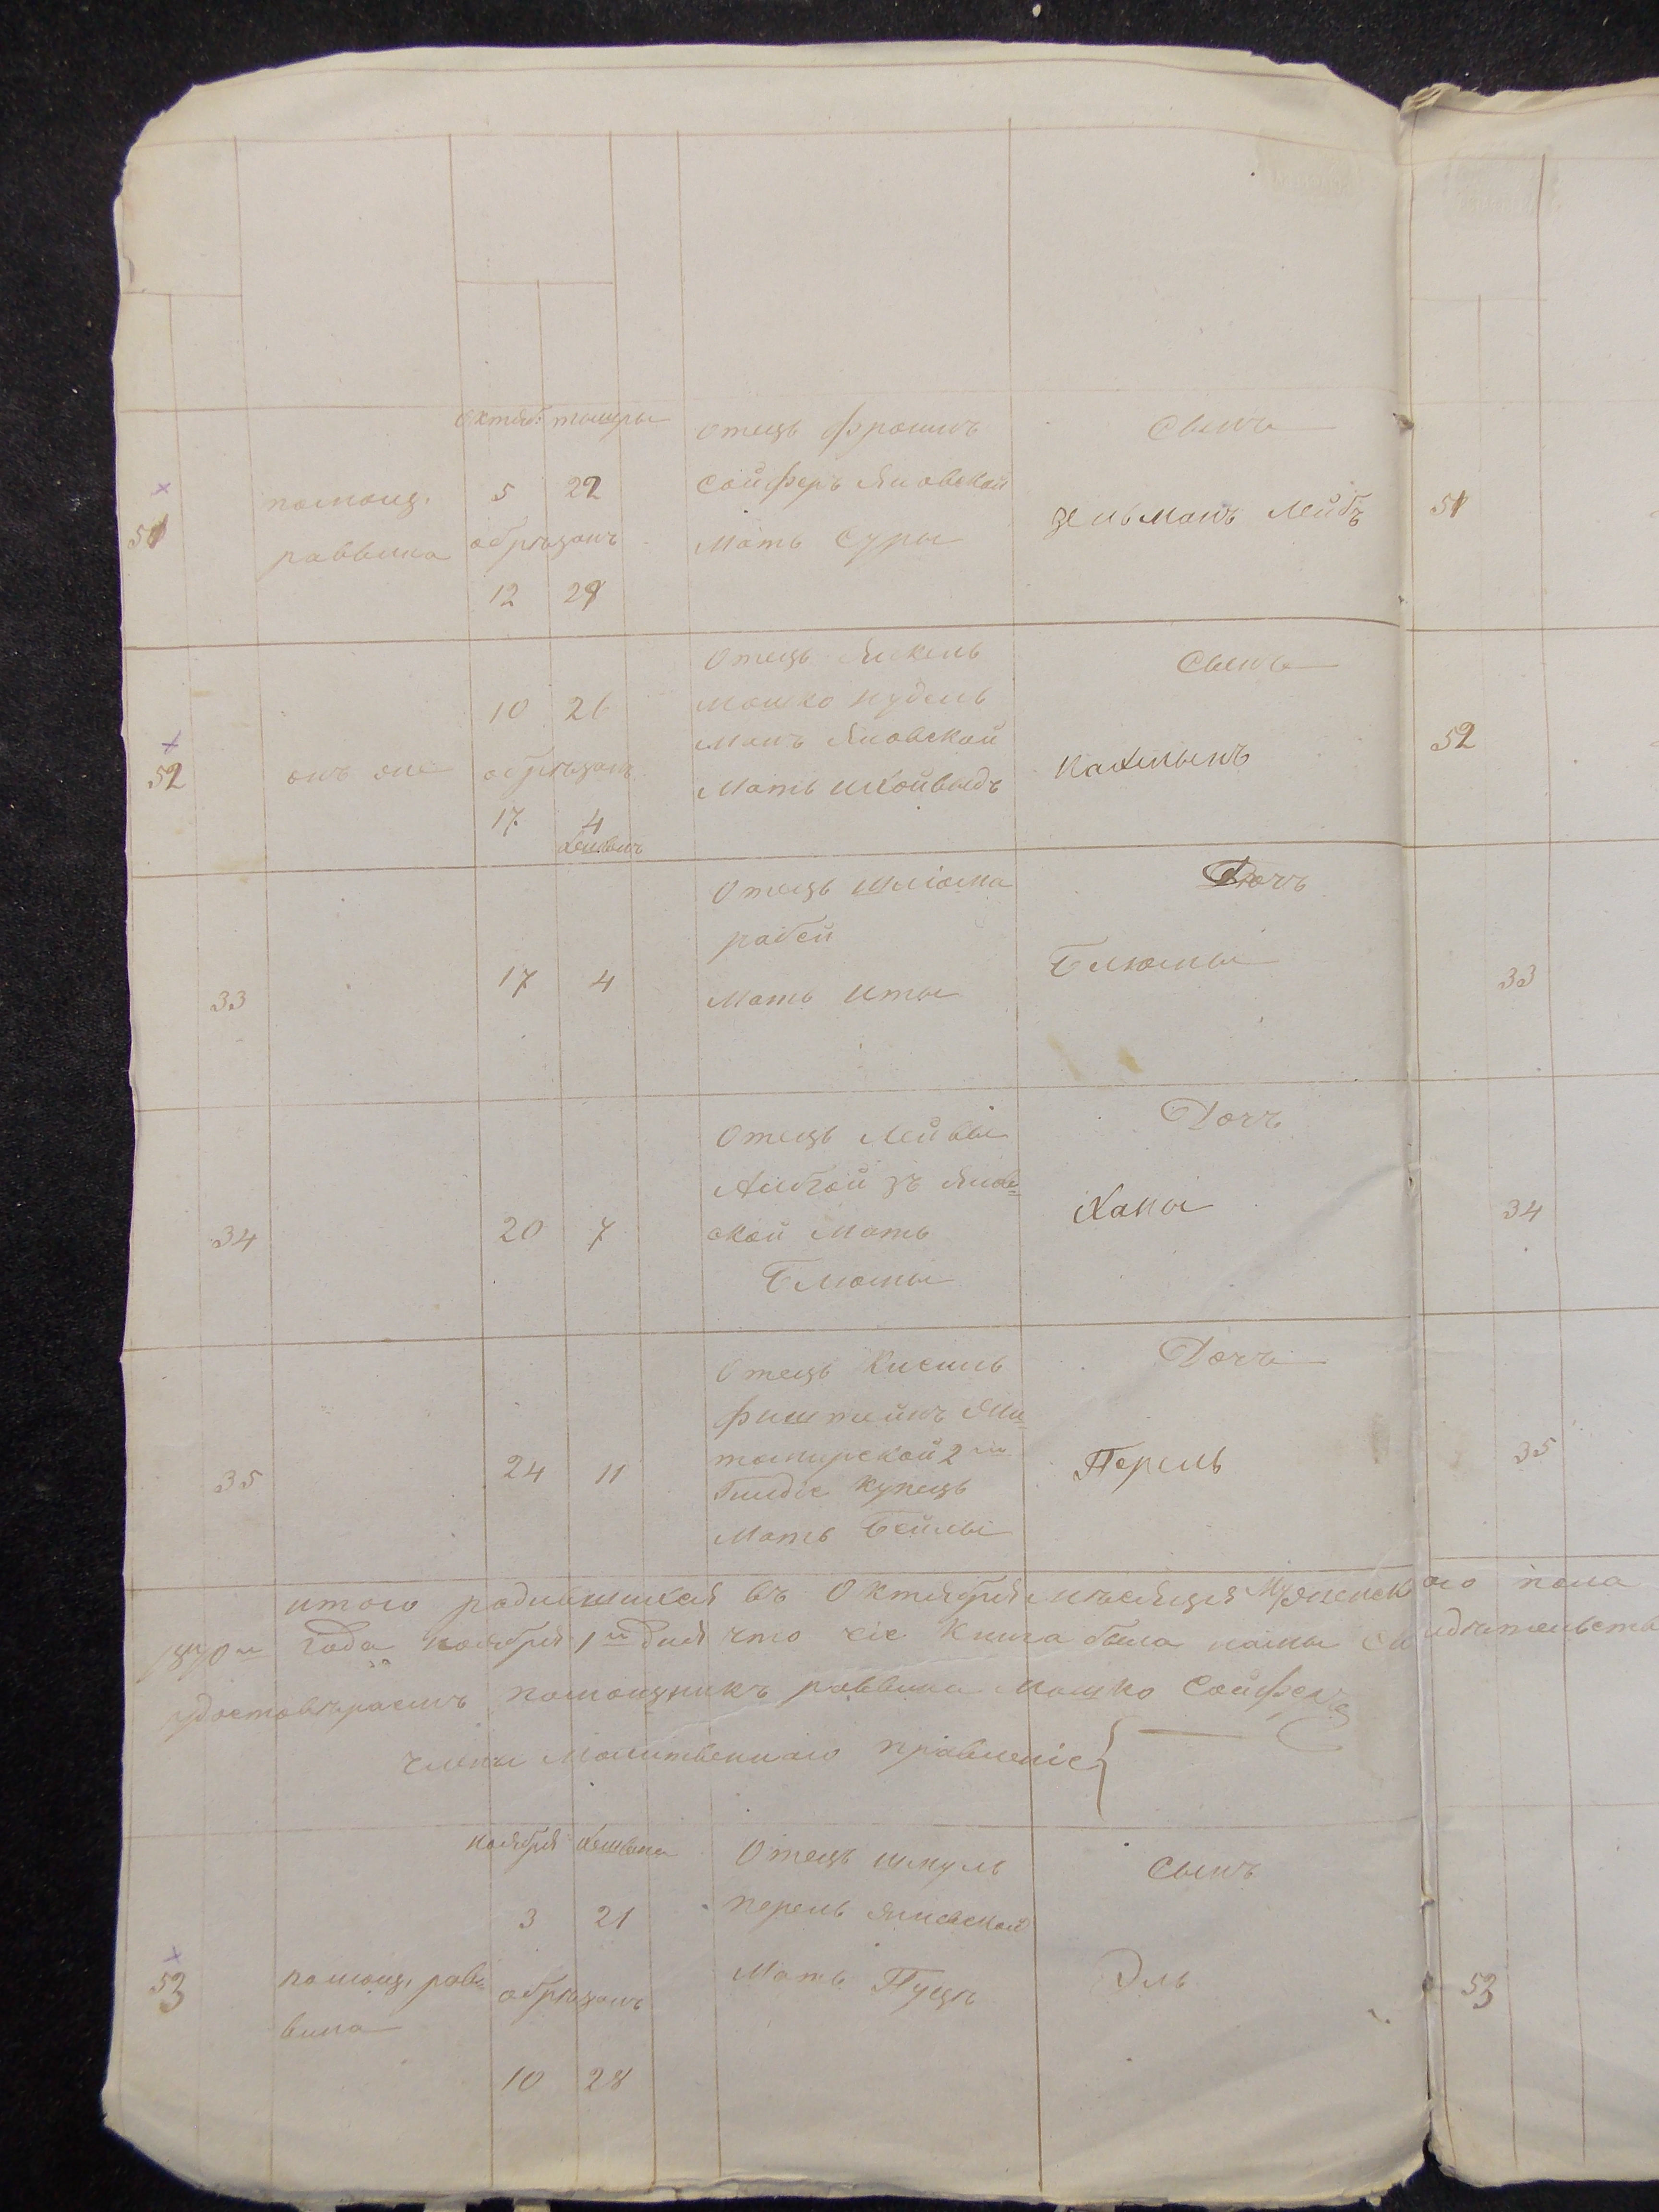 Октяб. тышры
51
помощ.
раввина
5 22
обрѣзанъ
12 29
Отецъ Фроимъ
Сойферъ Яновской
Мать Суры
Сынъ
зельманъ Лейбъ
51
52
онъ оне
10 26
обрѣзанъ
17 4
Хешванъ
Отецъ Янкель
Мошко нудель
манъ Яновской
Мать шкойвыдъ
Сынъ
Нахманъ
52
33
17 4
Отецъ Шлiома
рабей
Мать Иты
Дочъ
Блюмы
33
34
20 7
Отецъ Лейбы
зъ Янов=
ской Мать
Блюмы
Дочъ
Ханы
34
35
24 11
Отецъ Кисиль
Фиштейнъ Жи=
томирской 2й
Гилдiе купецъ
Мать Бейлы
Дочъ
Перель
35
итого родившихся въ Октября мѣсяцѣ Мужеского пола
1870го Года ноября 1го дня что сiе Книга была нами свидѣтельства
удостовѣраемъ помощникъ раввина Мошко Сойферъ
члены Молитвенного правленiе
ноября Хешвана
53
помощ. раб=
вина
3 21
обрѣзанъ
10 28
Отецъ шмуль
перель Яновской
Мать Пуци
Сынъ
Эль
53